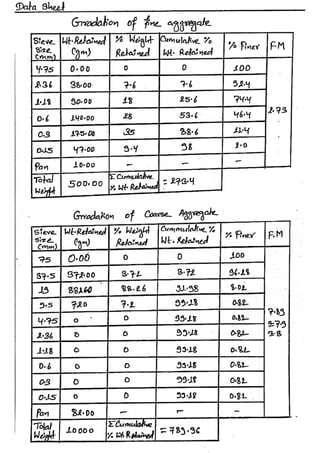 Data Sheet
Gradation of fine aggregate
Sieve Size (mm) Wt. Retained (gm) % Weight Retained Cumulative % Wt. Retained % Finer F.M
4.75 0.00 0 0 100
2.36 38.00 7.6 7.6 92.4
1.18 90.00 18 25.6 74.4
0.6 140.00 28 53.6 46.4 2.73
0.3 175.00 35 88.6 11.4
0.15 47.00 9.4 98 2.0
Pan 10.00 – – –
Total Weight 500.00 Σ Cumulative % Wt Retained = 273.4
Gradation of Coarse Aggregate
Sieve Size (mm) Wt. Retained (gm) % Weight Retained Cummulative % Wt. Retained % Finer F.M
75 0.00 0 0 100
37.5 372.00 3.72 3.72 96.28
19 8826.0 88.26 91.98 8.02
9.5 720 7.2 99.18 0.82
4.75 0 0 99.18 0.82 7.89
2.36 0 0 99.18 0.82 ≈7.9
1.18 0 0 99.18 0.82
0.6 0 0 99.18 0.82
0.3 0 0 99.18 0.82
0.15 0 0 99.18 0.82
Pan 82.00 – – –
Total Weight 10000 Σ Cumulative % Wt Retained = 789.96